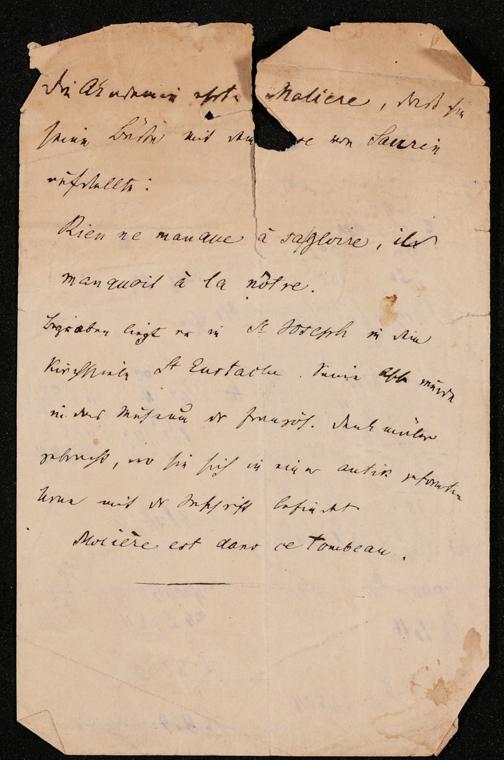 Die Akademie ehrte Molière, daß sie
seine Büste mit dem von Saurin
aufstellte:
Rien ne manque à sa gloire, il
manquoit à la nôtre.
Begraben liegt er in St Joseph in dem
Kirchspiele St Eustache. Seine Asche wurde
in das Museum der französ. Denkmäler
gebracht, wo sie sich in einer antik geformten
Urne mit der Inschrift befindet
Molière est dans ce tombeau.